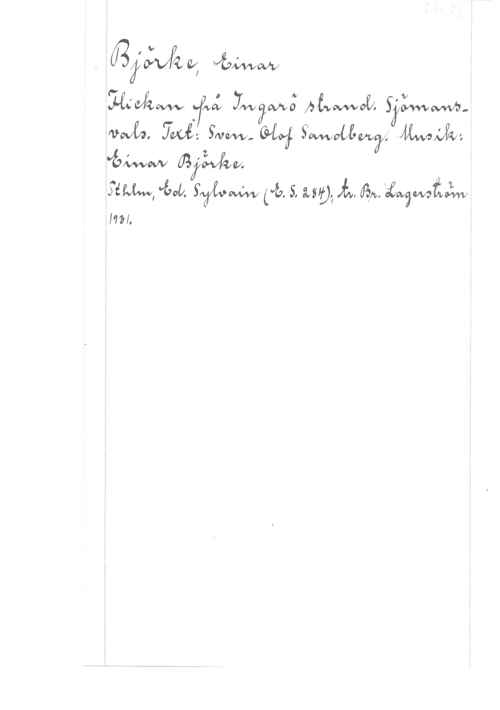 Björke, Einar
Flickan frå Ingarö strand. Sjömans-
vals. Text: Sven-Olof Sandberg. Musik:
Einar Björke.
Sthlm, Ed. Sylvain (E. S. 284), tr. Br. Lagerström
1931.